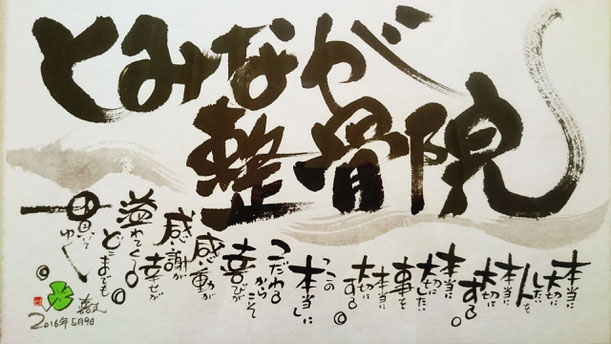 とみなが
整骨院
本当に
大切に
したい
人を
本当に
大切に
する。
本当に
大切に
したい
事を
本当に
大切に
する。
この
「本当に」
こだわる
からこそ
喜びが
感動が
感謝が
幸せが
溢れてくる
どこまでも
貫いて
ゆく。
2016年5月9日